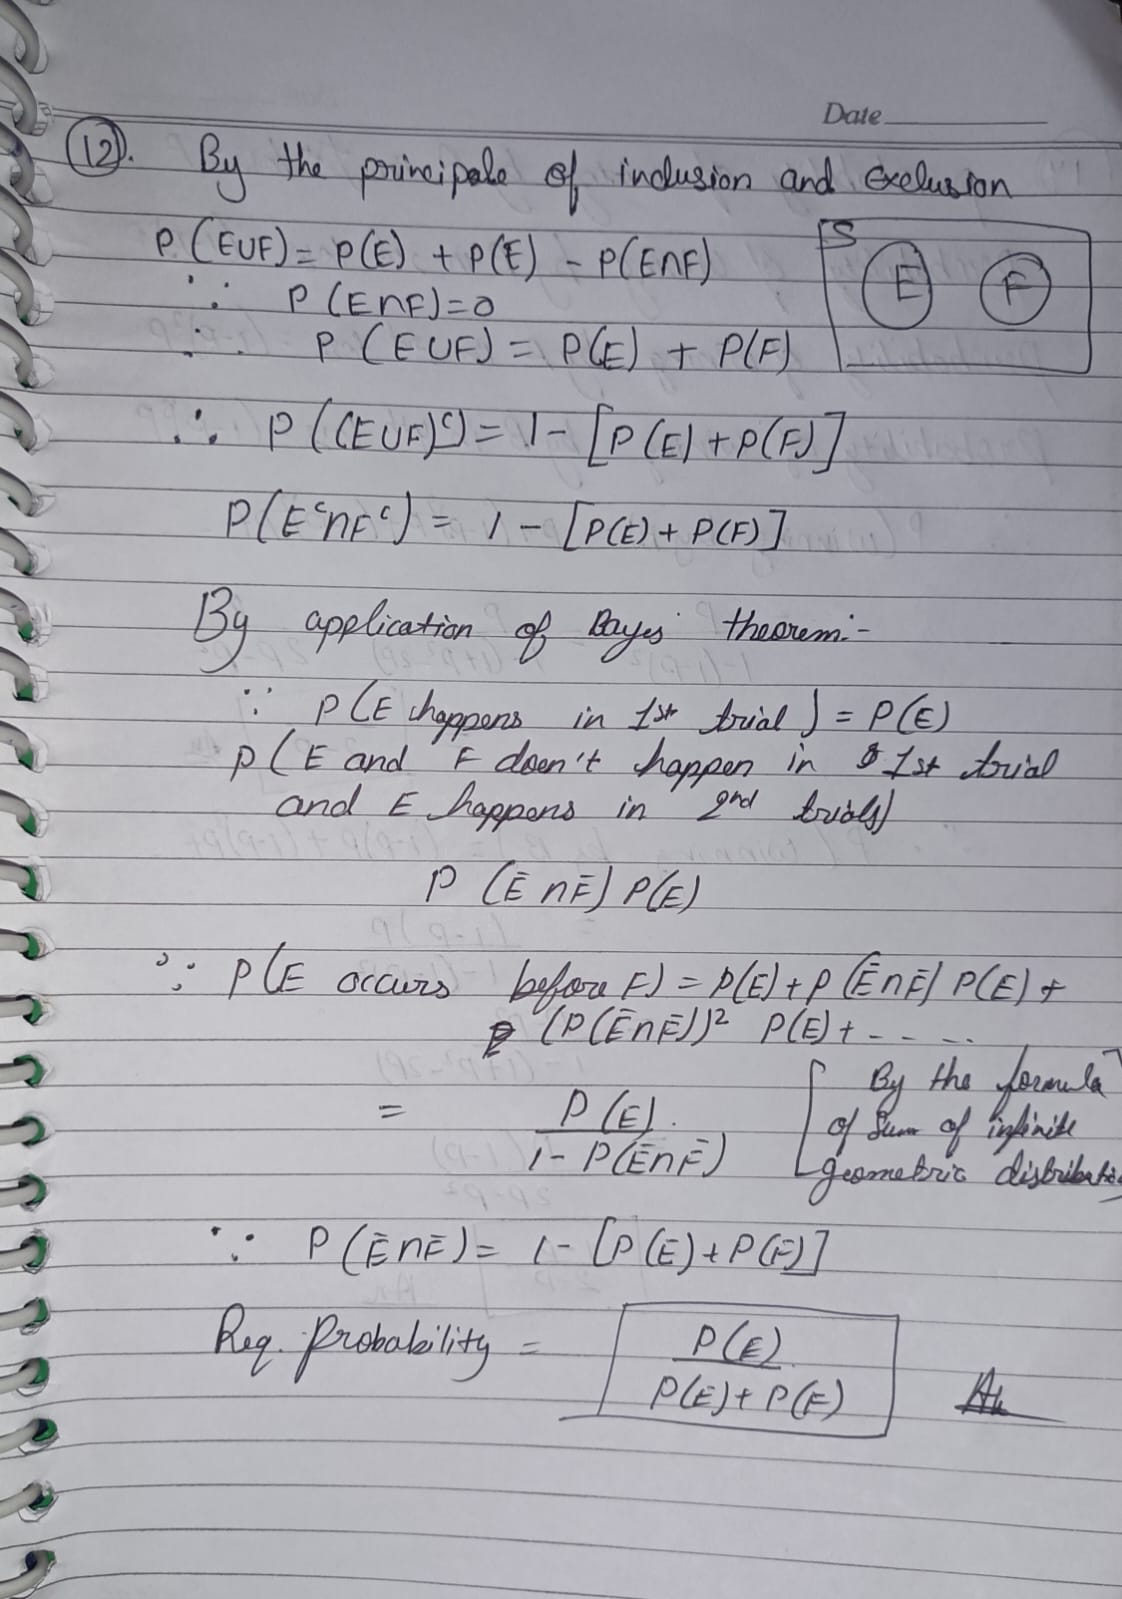 Date
(12). By the principale of inclusion and exclusion
P(E∪F) = P(E) + P(E) - P(E∩F)
∵ P(E∩F)=0
∴ P(E∪F) = P(E) + P(F)
S
E F
∴ P((E∪F)ᶜ) = 1 - [P(E) + P(F)]
P(Eᶜ∩Fᶜ) = 1 - [P(E) + P(F)]
By application of Bayes theorem:-
∵ P(E happens in 1st trial) = P(E)
P(E and F doen't happen in 1st trial
and E happens in 2nd trials)
P(Ē∩F̄) P(E)
∴ P(E occurs before F) = P(E) + P(Ē∩F̄) P(E) +
(P(Ē∩F̄))² P(E) + - - - -
= P(E) / 1 - P(Ē∩F̄)
[By the formula
of sum of infinite
geometric
∵ P(Ē∩F̄) = 1 - [P(E) + P(F)]
Req. Probability = P(E) / P(E) + P(F)